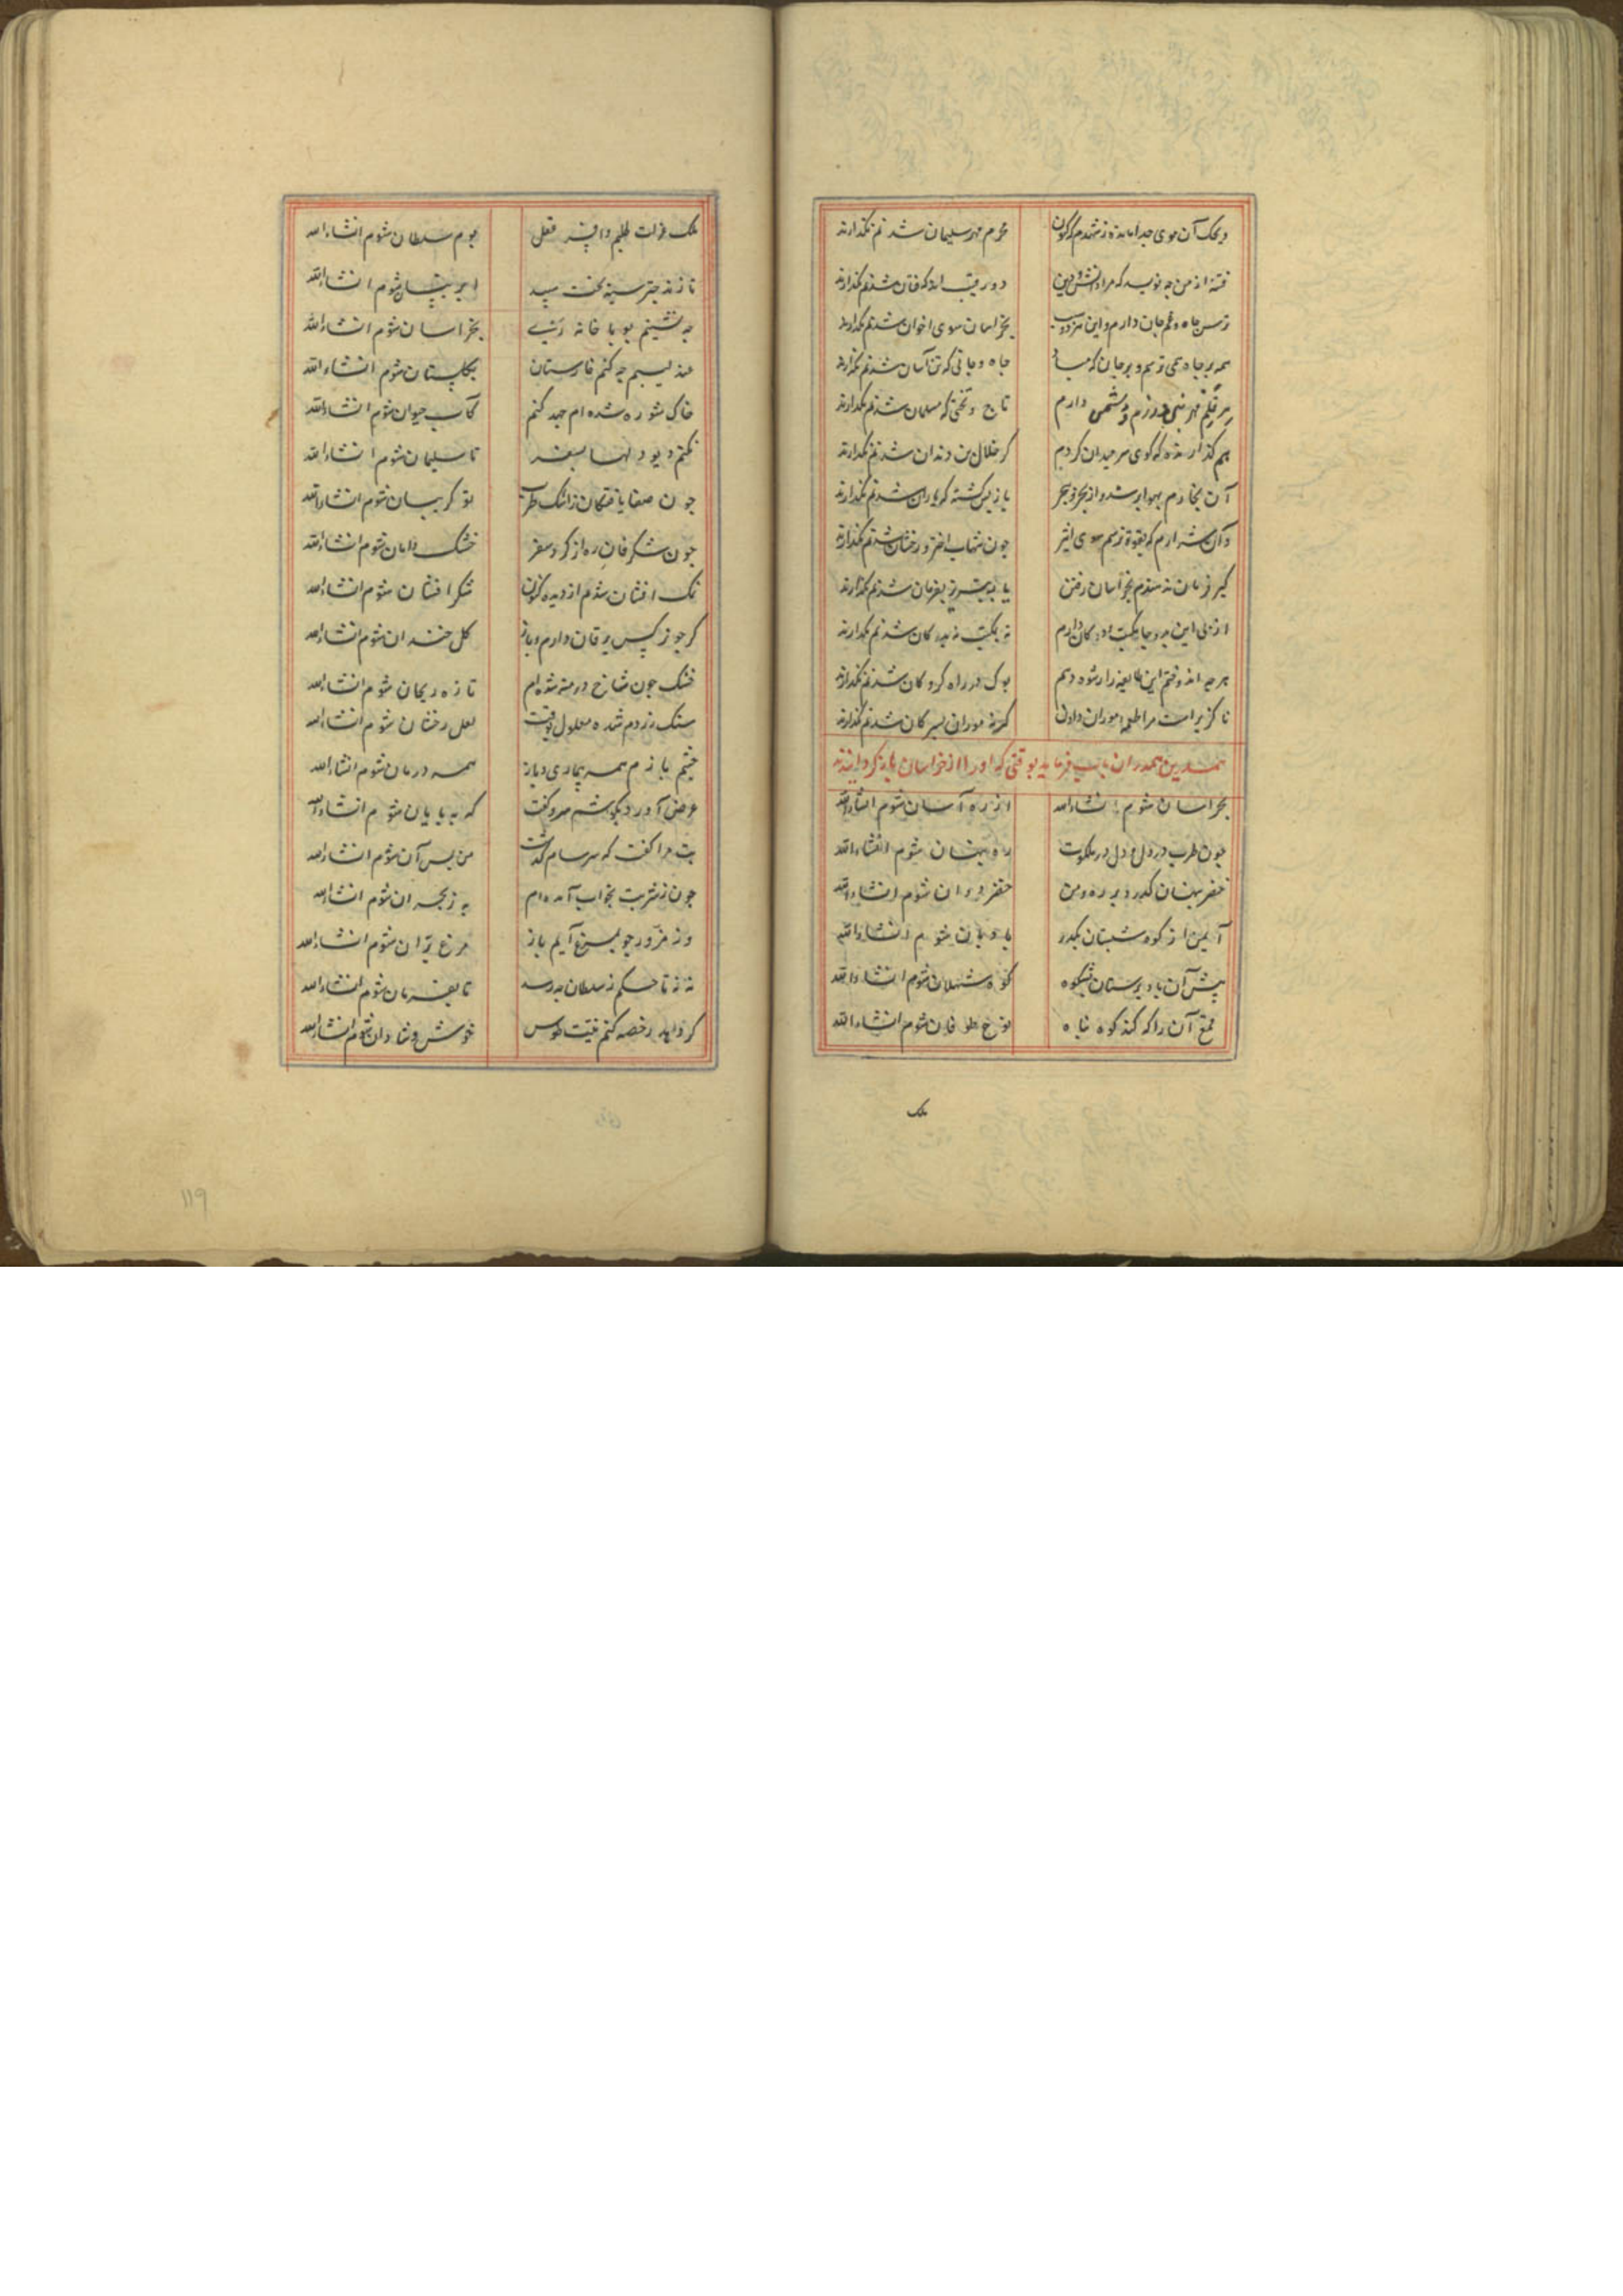 ویحک آن موی جدا مانده ز شهدم که کنون
محرم مهر سلیمان شدنم نگذارند
فتنه از من چه نویسد که مرا دانش و دین
دو رقیب اند که فتان شدنم نگذارند
ترس جاه و غم جان دارم و این هر دو سبب
بخراسان سوی اخوان شدنم نگذارند
همه بر جاه همی ترسم و بر جان که مباد
جاه و جانی که تن آسان شدنم نگذارند
دارم
تاج و تختی که مسلمان شدنم نگذارند
هم گذارنده که گوی سر میدان گردم
گر خلال بن دندان شدنم نگذارند
آن بخارم بهوا بر شده از بحر و ببحر
باز پس گشته که باران شدنم نگذارند
وآن شرارم که بقوة نرسم سوی اثیر
چون شهاب اختر رخشان شدنم نگذارند
گیر فرمان ندهندم بخراسان رفتن
باز تبریز بفرمان شدنم نگذارند
از پی این دو جا مکتب و دکان دارم
نه بمکتب نه بدکان شدنم نگذارند
هر چه اندوختم این طایفه را رشوه دهم
بوک در راه گروگان شدنم نگذارند
ناگزیر است مرا طعمه موران دادن
گرنه موران بسر کان شدنم نگذارند
همدرین فرماید بوقتی که او را از خراسان باز گردانیدند
بخراسان شوم انشاءالله
از ره آسان شوم انشاءالله
چون طرب در دل و دل در ملکوت
ره پنهان شوم انشاءالله
خضر پنهان گذرد بر ره و من
خضر دوران شوم انشاءالله
آیمن از کوه شبستان بگذر
باد بان شوم انشاءالله
پیش آن باد پرستان بشکوه
کوه شهلان شوم انشاءالله
قمع آن را که کند کوه پناه
نوح طوفان شوم انشاءالله
ملک
ملک عزلت طلبم و افسر عقل
بوم سلطان شوم انشاءالله
تا زند چتر سیه بخت سپید
ابر نیسان شوم انشاءالله
چه نشینم بوبا خانه ری
بخراسان شوم انشاءالله
عندلیبم چه کنم خارستان
بگلستان شوم انشاءالله
خاک شوره شده ام جهد کنم
کآب حیوان شوم انشاءالله
بکشم دیو دلیها بسفر
تا سلیمان شوم انشاءالله
چون صفا یافتگان ز اشک طرب
نو گریبان شوم انشاءالله
چون شگرفان ره از گرد سفر
خشک دامان شوم انشاءالله
نمک افشان شدم از دیده کنون
شکر افشان شوم انشاءالله
گر چو نرگس یرقان دارم و باز
گل خندان شوم انشاءالله
خشک چون شاخ درمنه شده ام
تازه ریحان شوم انشاءالله
سنگ زردم شده معلول بوقت
لعل رخشان شوم انشاءالله
چشم بازم همه بیماری و باز
همه درمان شوم انشاءالله
عرض آورد بگوشم سر و گفت
که به پایان شوم انشاءالله
تب مرا گفت که سرسام گذشت
من پس آن شوم انشاءالله
چون ز شربت بجلاب آمده ام
به ز بحران شوم انشاءالله
وز مزور چو بمرغ آیم باز
مرغ پران شوم انشاءالله
نه نه تا حکم ز سلطان برسد
تا بفرمان شوم انشاءالله
گر دهد رخصه کنم نیت طوس
خوش و شادان شوم انشاءالله
119